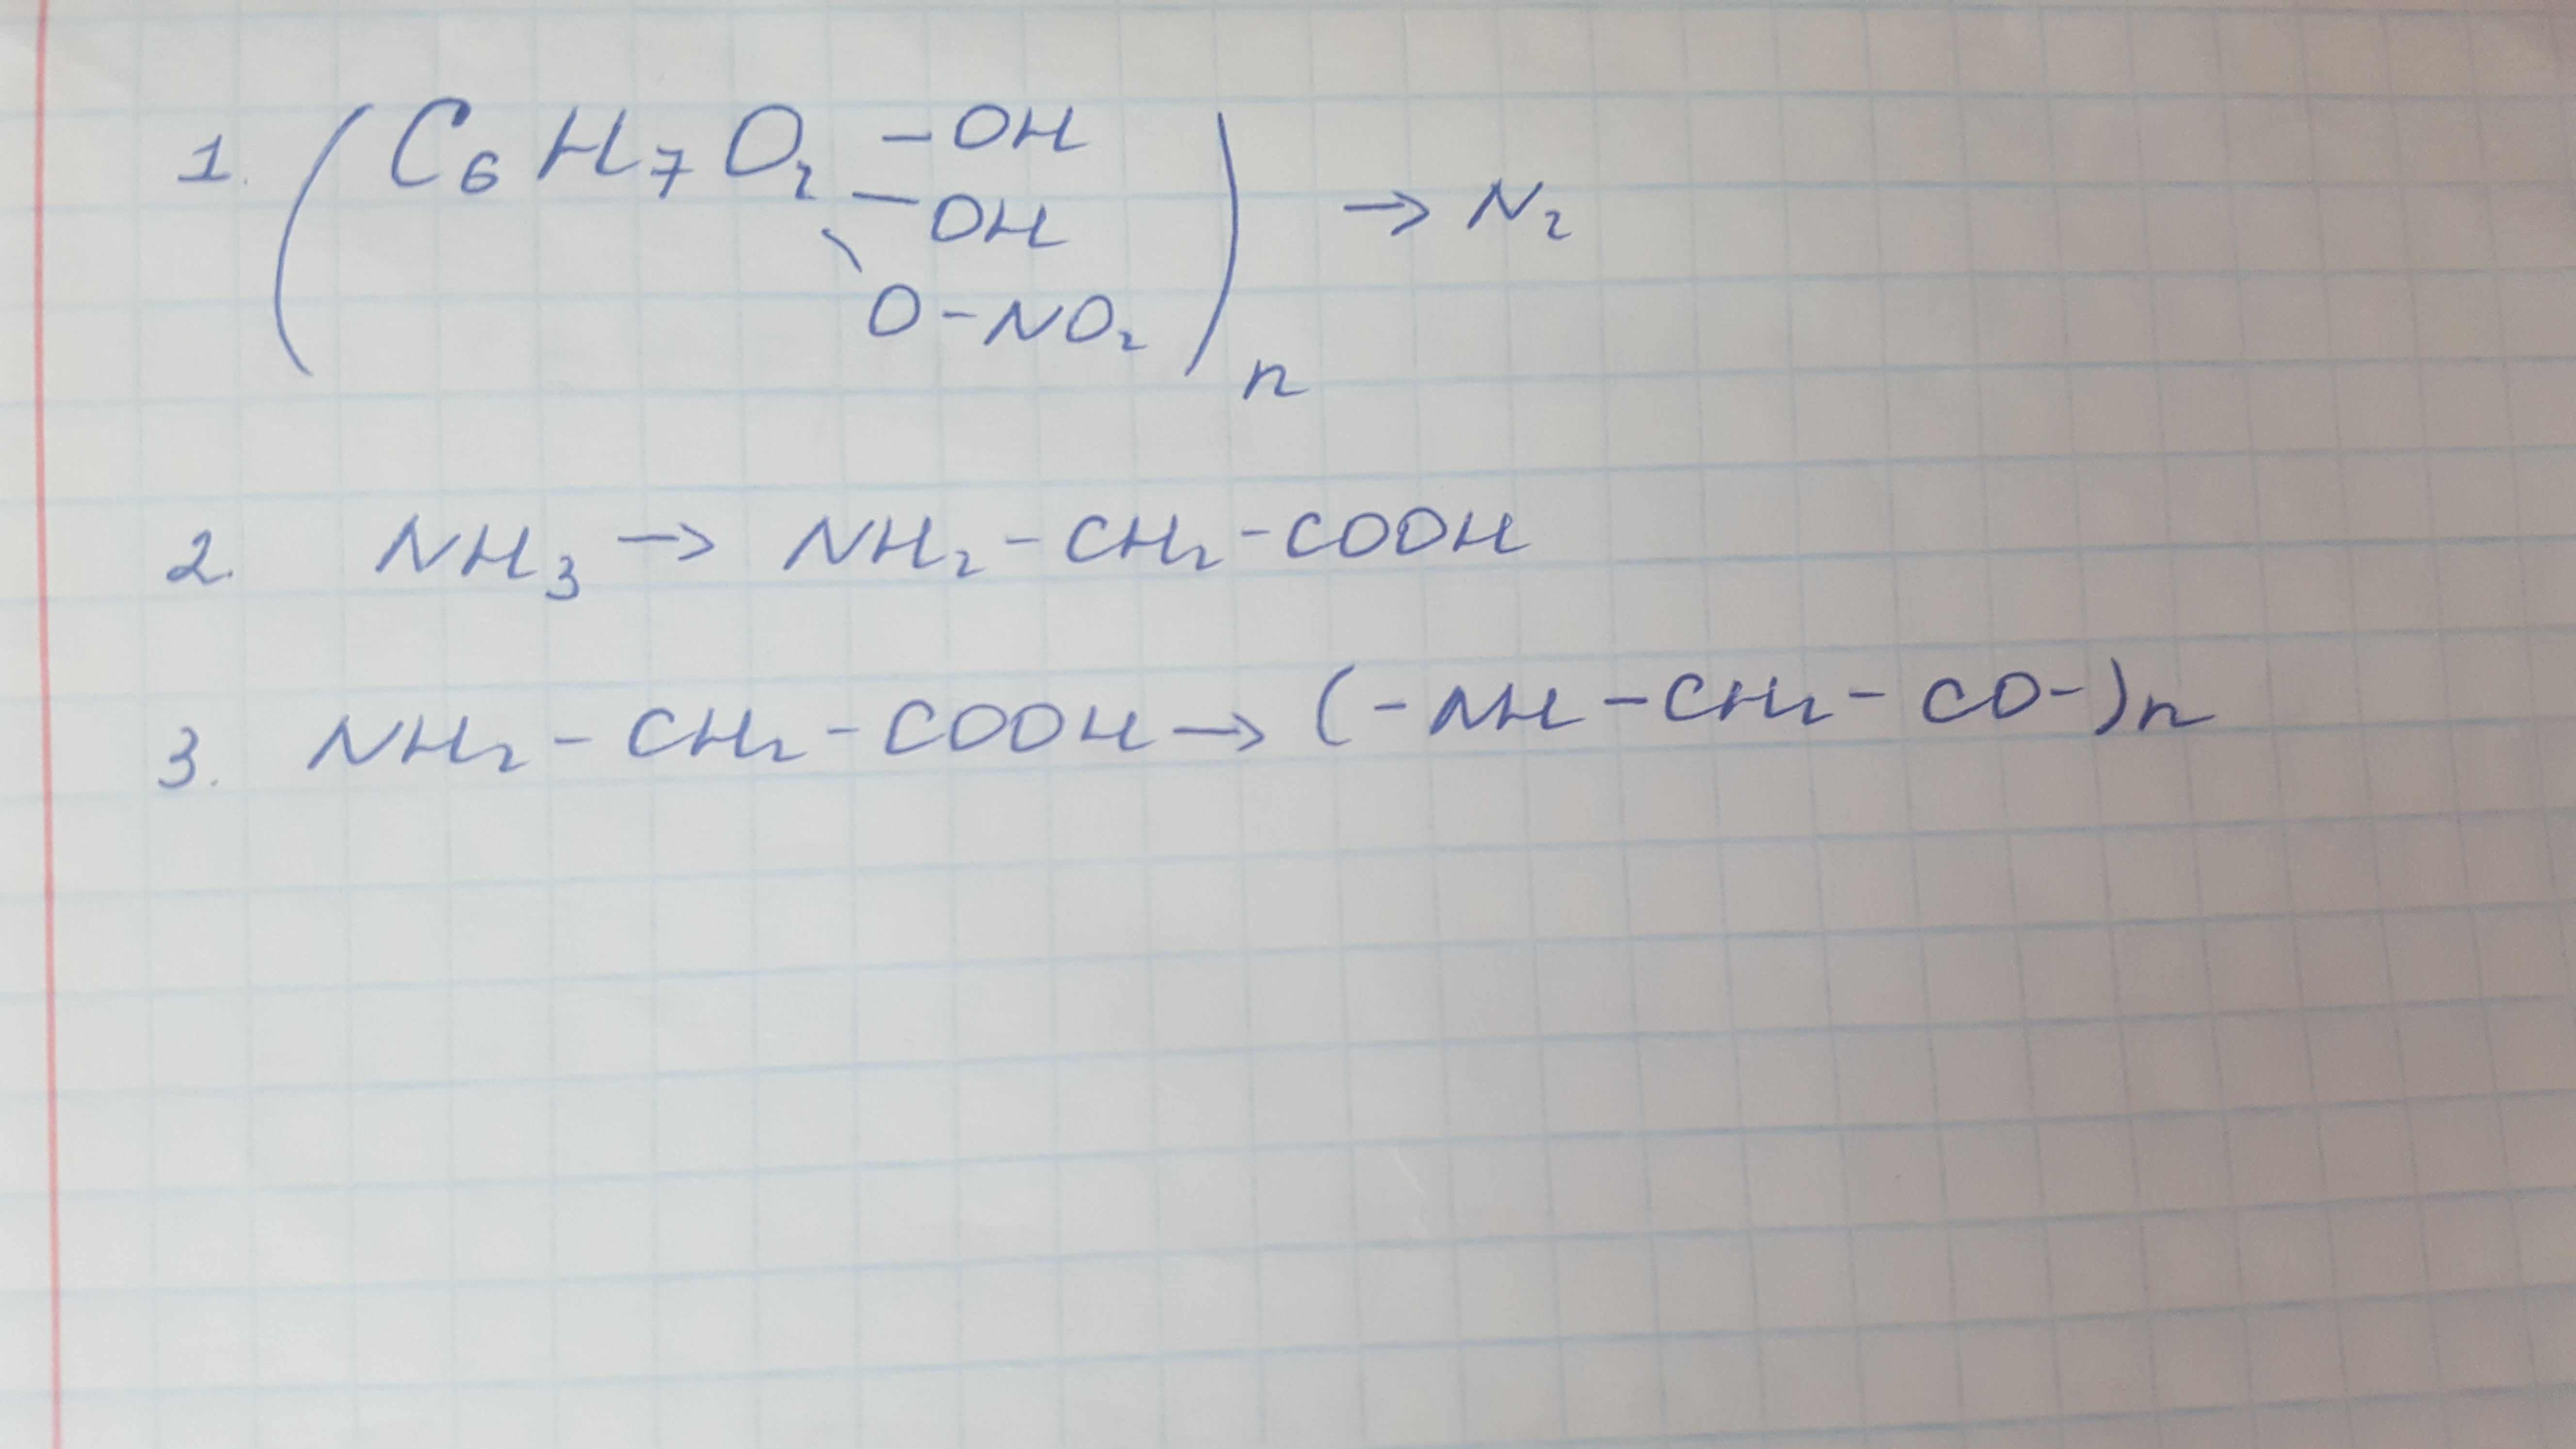 1. (C₆H₇O₂ -OH
-OH
\O-NO₂)n → N₂
2. NH₃ → NH₂-CH₂-COOH
3. NH₂-CH₂-COOH → (-NH-CH₂-CO-)n